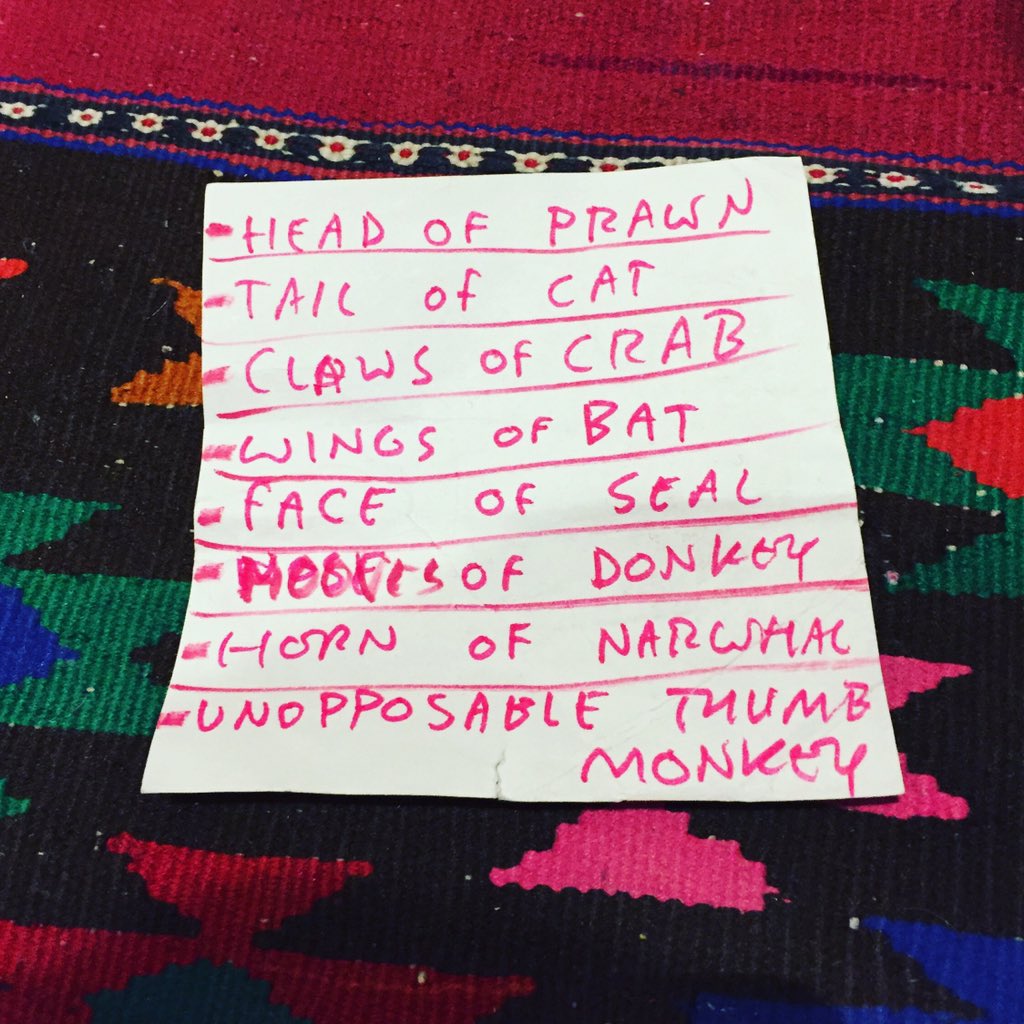 - HEAD OF PRAWN
- TAIL OF CAT
- CLAWS OF CRAB
- WINGS OF BAT
- FACE OF SEAL
- OF DONKEY
- HORN OF NARWHAL
- UNOPPOSABLE THUMB
MONKEY